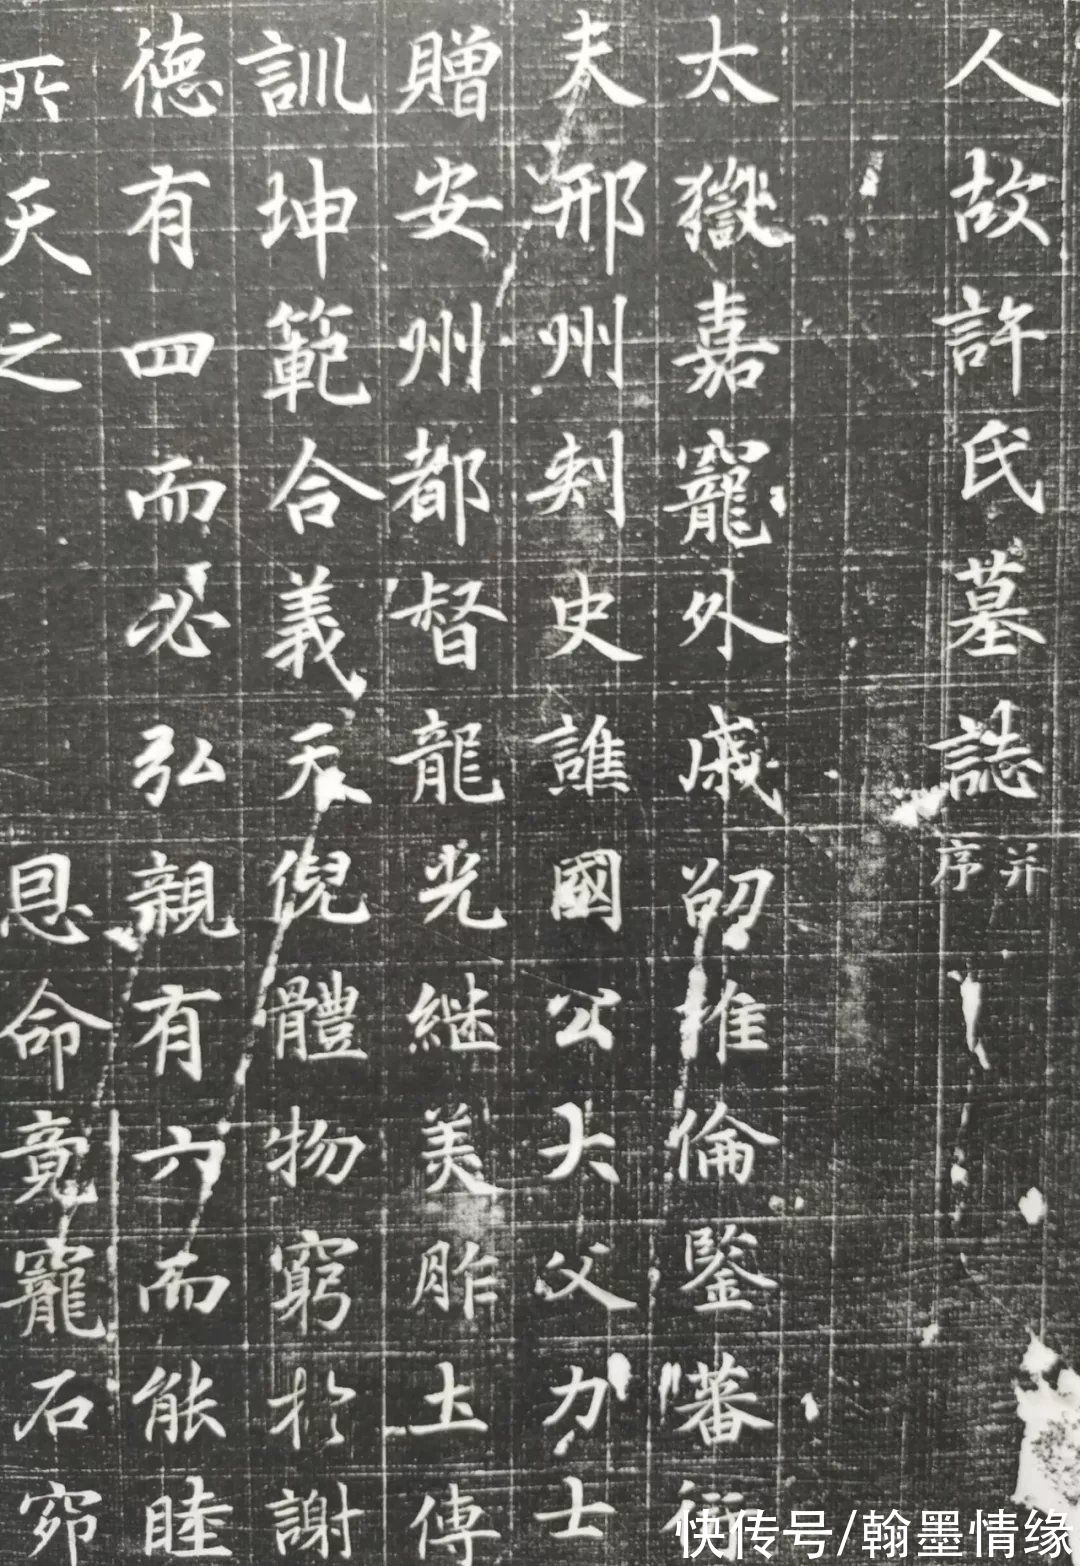 人故許氏墓誌并序
太嶽嘉寵外戚㔽推倫鑒蕃衍
夫邢州刾史譙國公大父力士
贈安州都督龍光継美胙土傳
訓坤範合義天倪體物窮於謝
德有四而必弘親有六而能睦
所天之恩命竟寵石窆
快传号/翰墨情缘